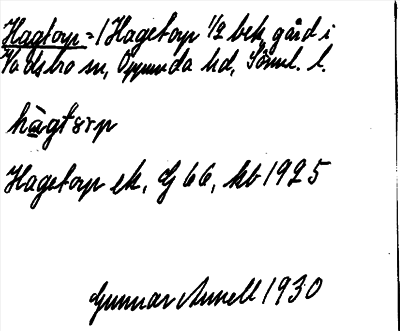 Hagtorp = / Hagetorp 1/2 bek, gård i
Vadsbro sn, Oppunda hd, Söml. l.
hàgtorp
Hagetorp ek, G 66, kb 1925
Gunnar Annell 1930